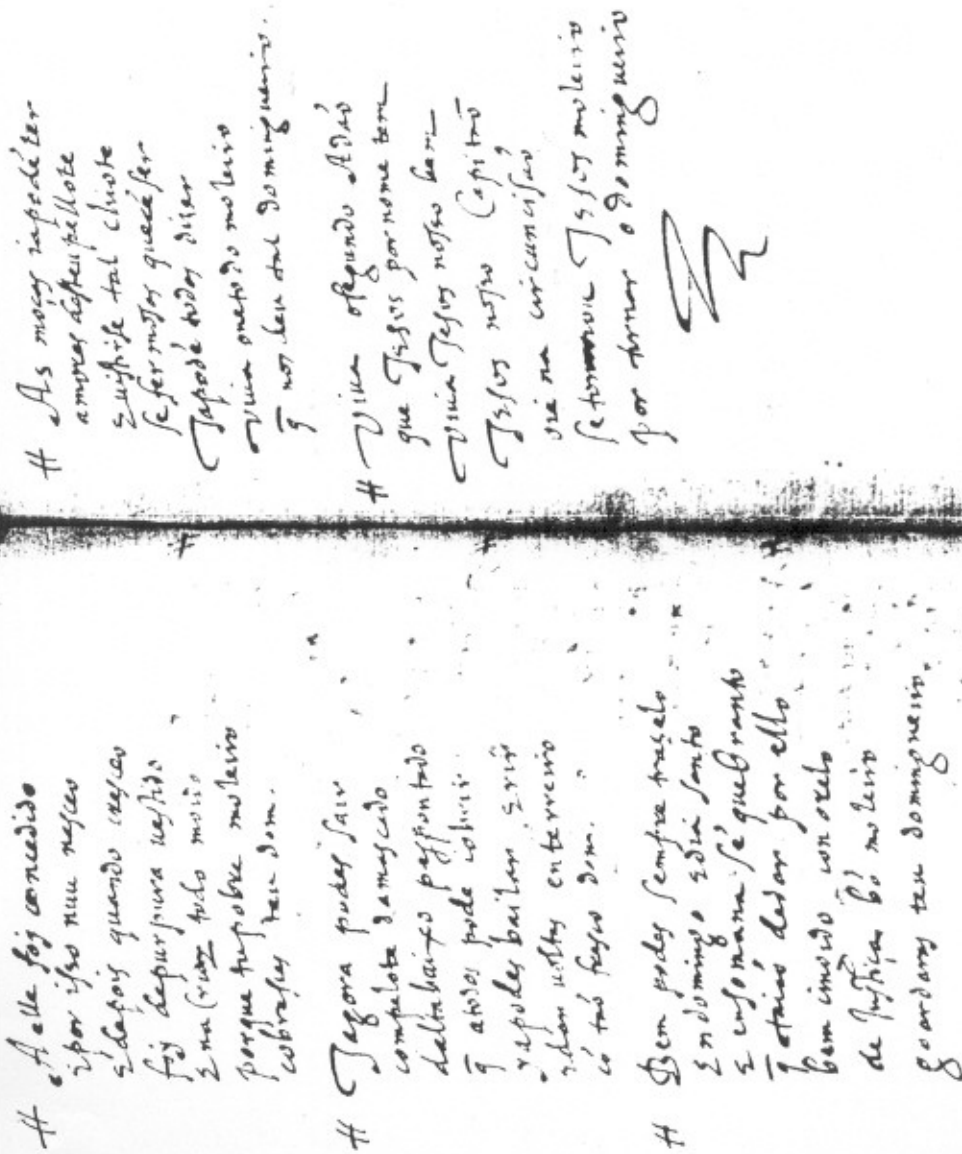 # A elle foj concedido
ipor isso nuu nasceo
E depois quando cresceo
foj depurpura vestido
E na Cruz todo moido
porque tu pobre moleiro
cobrasses teu dom.
# Jagora podes sair
compelote damascado
dealtabaixo pespontado
q̃ atodos pode cobrir
ya podes bailar E rir
edar voltas enterreiro
cõ tão fresco dom.
# Bem podes sempre trazelo
E ndomingo E dia santo
E ensomana se quebranto
q̃ dedar por ello
bem conorelo
de Justiça bõ moleiro
goardaras teu domingueiro.
# As moças japodẽ ter
amores desteu pellote
E vistirse tal chiote
se fermosas querẽ ser
Japodẽ todos dizer
viva oneto do moleiro
q̃ nos deu tal domingueiro.
# Viva osegundo Adão
que Jesus por nome tem
Viva Jesus nosso bem
Jesus nosso Capitão
oie na circuncisão
se tornou Jesus moleiro
por tornar o domingueiro